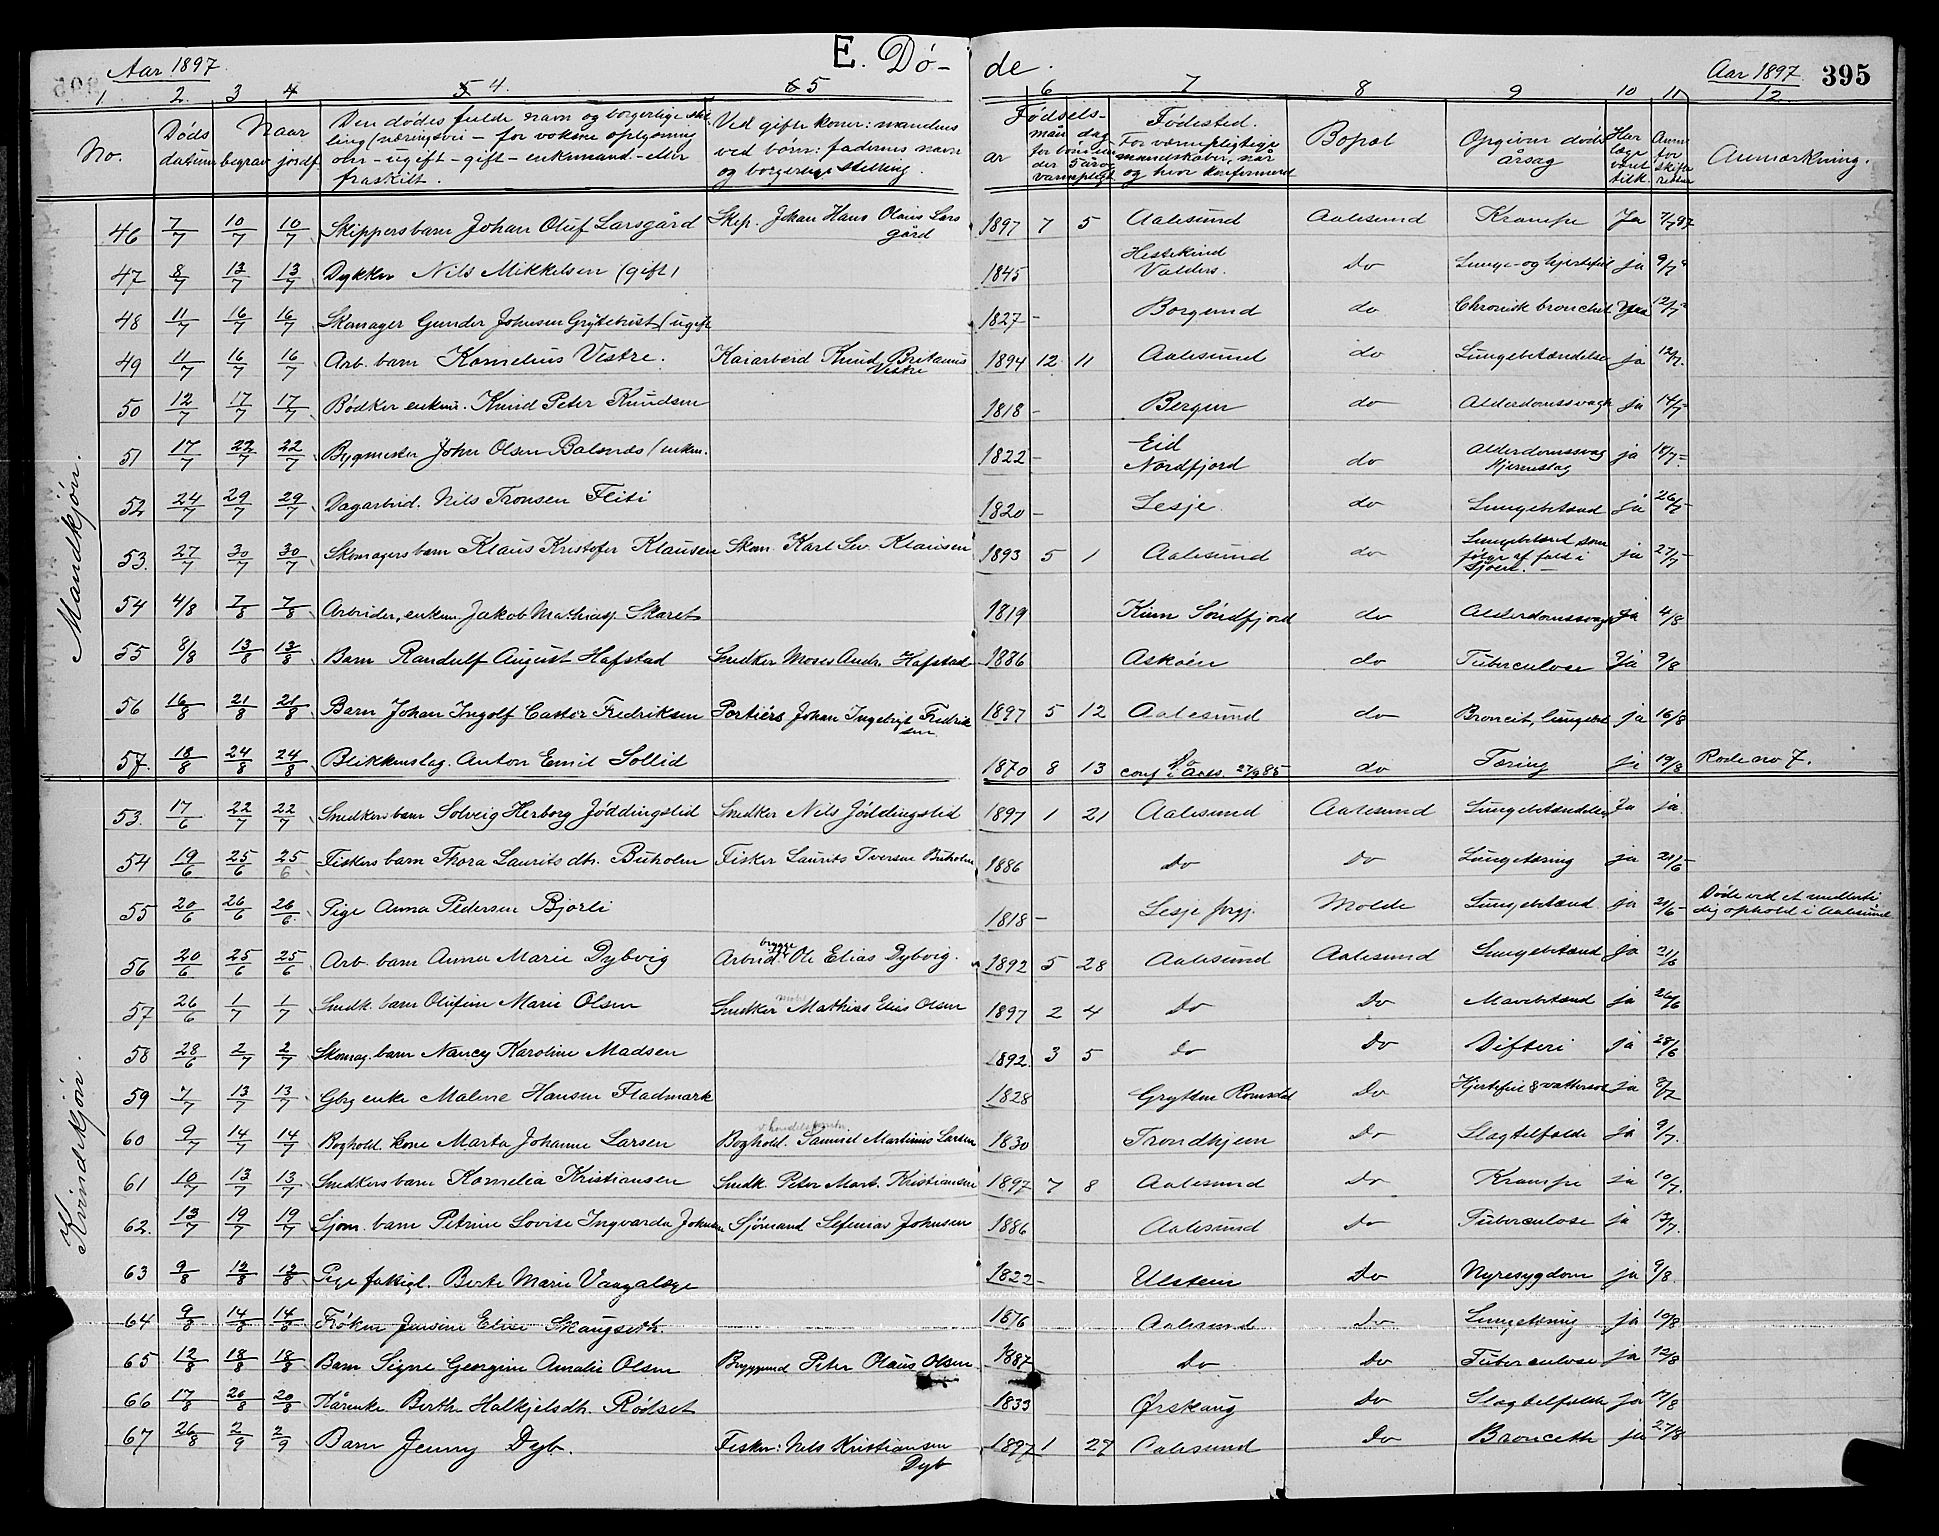 Aar 1897. E. Dö- de. Aar 1897. 395
1 2. 3 4 5 4. 6 5 6 7 8 9 10 11 12
No. Döds datum Naar begrav jordf. Den dödes fulde navn og borgerlige stilling (næringsvei - for voksne oplysning om - ugift - gift - enkemand - eller fraskilt. Ved gifte koner: mandens ved barn: faderens navn og borgerlige stilling. Fødsels- aar mån dag Fødested. For værnepligtige mandskaber, når og hvor konfirmerd Bopæl Opgiven døds årsag Har læge været tilk. Anm. for skifte retten Anmærkning.
Mandkjön.
46 7/7 10/7 10/7 Skippersbarn Johan Oluf Larsgård Skip. Johan Hans Olaus Lars gård 1897 7 5 Aalesund Aalesund Krampe Ja 7/7 97
47 8/7 13/7 13/7 Dykker Nils Mikkelsen (gift) 1845 Hestekind Valders. Do Lunge- og hjertefeil ja 9/7
48 11/7 16/7 16/7 Skomager Gunder Johnsen Grytebust (ugift 1827 - Borgund do Chronisk bronchit 12/7
49 11/7 16/7 16/7 Arb. barn Kornelius Vestre. Kaiarbeid Knud Bretanus Vestre 1894 12 11 Aalesund do Lungebetændelse ja 12/7.
50 12/7 17/7 17/7 Bødker enkem. Knud Peter Knudsen 1818 - Bergen do Alderdomssvagh ja 14/7
51 17/7 22/7 22/7 Bygmester John Olsen Balsnæs (enkem. 1822 - Eid Nordfjord do Alderdomssvag Hjerneslag ja 18/7
52 24/7 29/7 29/7 Dagarbeid. Nils Tronsen Fliti 1820 - Lesje do Lungebetænd ja 26/7
53. 27/7 30/7 30/7 Skomagersbarn Klaus Kristofer Klausen Skom. Karl Sev. Klausen 1893 5 1 Aalesund do Lungebetænd som følge af fald i Sjøen. - ja 27/7
54 4/8 7/8 7/8 Arbeider, enkem. Jakob Mathiasj. Skaret 1819 Kinn Söndfjord do Alderdomssvagh ja 4/8
55 8/8 13/8 13/8 Barn Randulf August Hafstad Snedker Moses Andr. Hafstad 1886 Askøen do Tuberculose Ja 9/8
56 16/8 21/8 21/8 Barn Johan Ingolf Castor Fredriksen Portiers Johan Ingebrigt Fredrik sen 1897 5 12 Aalesund do Broncit, lungebet ja 16/8
57. 18/8 24/8 24/8 Blikkenslag. Anton Emil Sollid 1870 8 13 Do conf. i Aals. 27/9 85 do Tæring ja 19/8 Rode no 7.
Kvindekjön.
53. 17/6 22/7 22/7 Snedkers barn Solveig Herborg Jöddingslid Snedker Nils Jöddingslid 1897 1 21 Aalesund Aalesund Lungebetændelse Ja ja
54 19/6 25/6 25/6 Fiskers barn Thora Laurits dtr. Buholm Fisker Laurits Iversen Buholm 1886 Do Do Lungetæring ja 21/6
55 20/6 26/6 26/6 Pige Anna Pedersen Bjorli 1818 - Lesje prgj. Molde Lungebetænd. ja 21/6 Døde ved et midlerti dig ophold i Aalesund
56 20/6 25/6 25/6 Arb. barn Anna Marie Dybvig brygge Arbeid. Ole Elias Dybvig. 1892 5 28 Aalesund Aalesund Lungebetænd ja 21/6
57 26/6 1/7 1/7 Snedk. barn Olufine Marie Olsen Snedker Mathias Elias Olsen 1897 2 4 Do Do Mavebetænd ja 26/6
58 28/6 2/7 2/7 Skomag. barn Nancy Karoline Madsen 1892 3 5 do Do Difteri ja 28/6
59 7/7 13/7 13/7 Gbr enke Malene Hansen Fladmark 1828 Grytten Romsdal Do Hjertefeil & vattersot ja 8/7
60 9/7 14/7 14/7 Boghold. kone Marta Johanne Larsen Boghold. Samuel Martinius Larsen 1830 Trondhjem Do Slagtilfælde ja 9/7.
61 10/7 13/7 13/7 Snedkers barn Kornelia Kristiansen Snedk. Peter Mart. Kristiansen 1897 7 8 Aalesund Do Krampe ja 10/7.
62. 13/7 19/7 19/7 Sjöm. barn Petrine Lovise Ingvarda Johnsen Sjömand Sefenias Johnsen 1886 Aalesund Do Tuberculose ja 13/7.
63 9/8 12/8 12/8 Pige fattigl. Berte Marie Vaagalsye 1822 - Ulstein Do Nyresygdom ja 9/8.
64 9/8 14/8 14/8 Fröken Jensine Elise Skaugseth. 1876 Aalesund Do Lungetæring ja 10/8
65 12/8 18/8 18/8 Barn Signe Georgine Amalie Olsen Byggmd Peter Olaus Olsen 1887 Do Do Tuberculose ja 12/8
66 17/8 20/8 20/8 Kårenke Berthe Halkjelsdtr. Rødset 1833 Ørskaug Do Slagtilfælde ja 17/8
67 26/8 2/9 2/9 Barn Jenny Dyb. Fisker: Nils Kristiansen Dyb 1897 1 27 Aalesund Do Bronceth ja 27/8